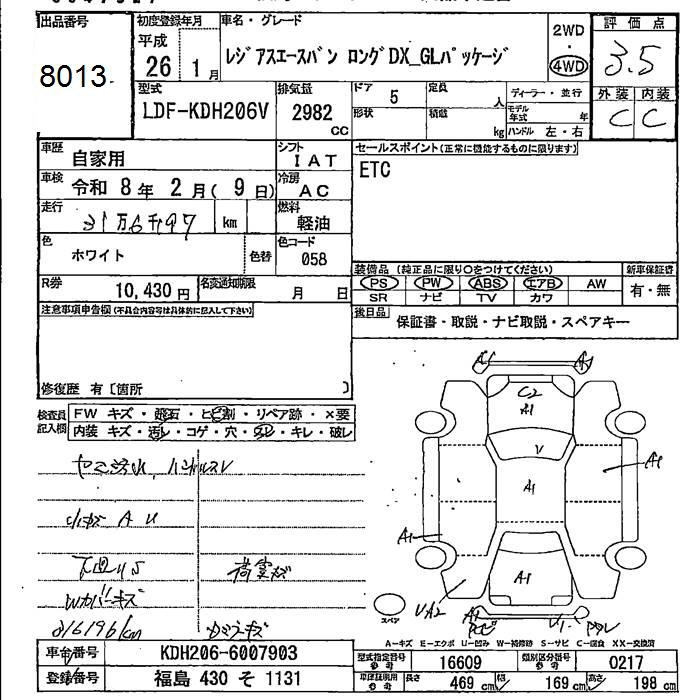 出品番号
8013
初度登録年月
平成
26 1月
車名・グレード
レジアスエースバン ロングDX_GLパッケージ
2WD
・
4WD
評価点
3.5
外装 内装
C C
型式
LDF-KDH206V
排気量
2982
CC
ドア 5
形状
定員 人
積載 kg
ディーラー・並行
モデル年式 年
ハンドル 左・右
車歴 自家用
シフト IAT
車検 令和 8年 2月( 9日)
冷房 AC
走行 31万6千197 km
燃料 軽油
色 ホワイト
色替
色コード 058
R券 10,430円
名変通知期限 月 日
セールスポイント(正常に機能するものに限ります)
ETC
装備品 (純正品に限り○をつけてください)
PS PW ABS エアB AW
SR ナビ TV カワ
新車保証書
有・無
後日品 保証書・取説・ナビ取説・スペアキー
注意事項申告欄(不具合内容等は具体的に記入して下さい)
修復歴 有〔箇所 〕
検査員記入欄
FW キズ・飛石・ヒビ割・リペア跡・×要
内装 キズ・汚レ・コゲ・穴・スレ・キレ・破レ
ハンドルスレ
A U
下回りS
荷室キズ
Wカバーキズ
316196km
A1
A1
C2
A1
V
A1
A1
A1
A1
UA2
スペア
A-キズ E-エクボ U-凹み W-補修跡 S-サビ C-腐食 XX-交換済
車台番号 KDH206-6007903
登録番号 福島 430 そ 1131
型式指定番号 参考 16609
類別区分番号 参考 0217
車体証明用 参考
長さ 469 cm 幅 169 cm 高さ 198 cm